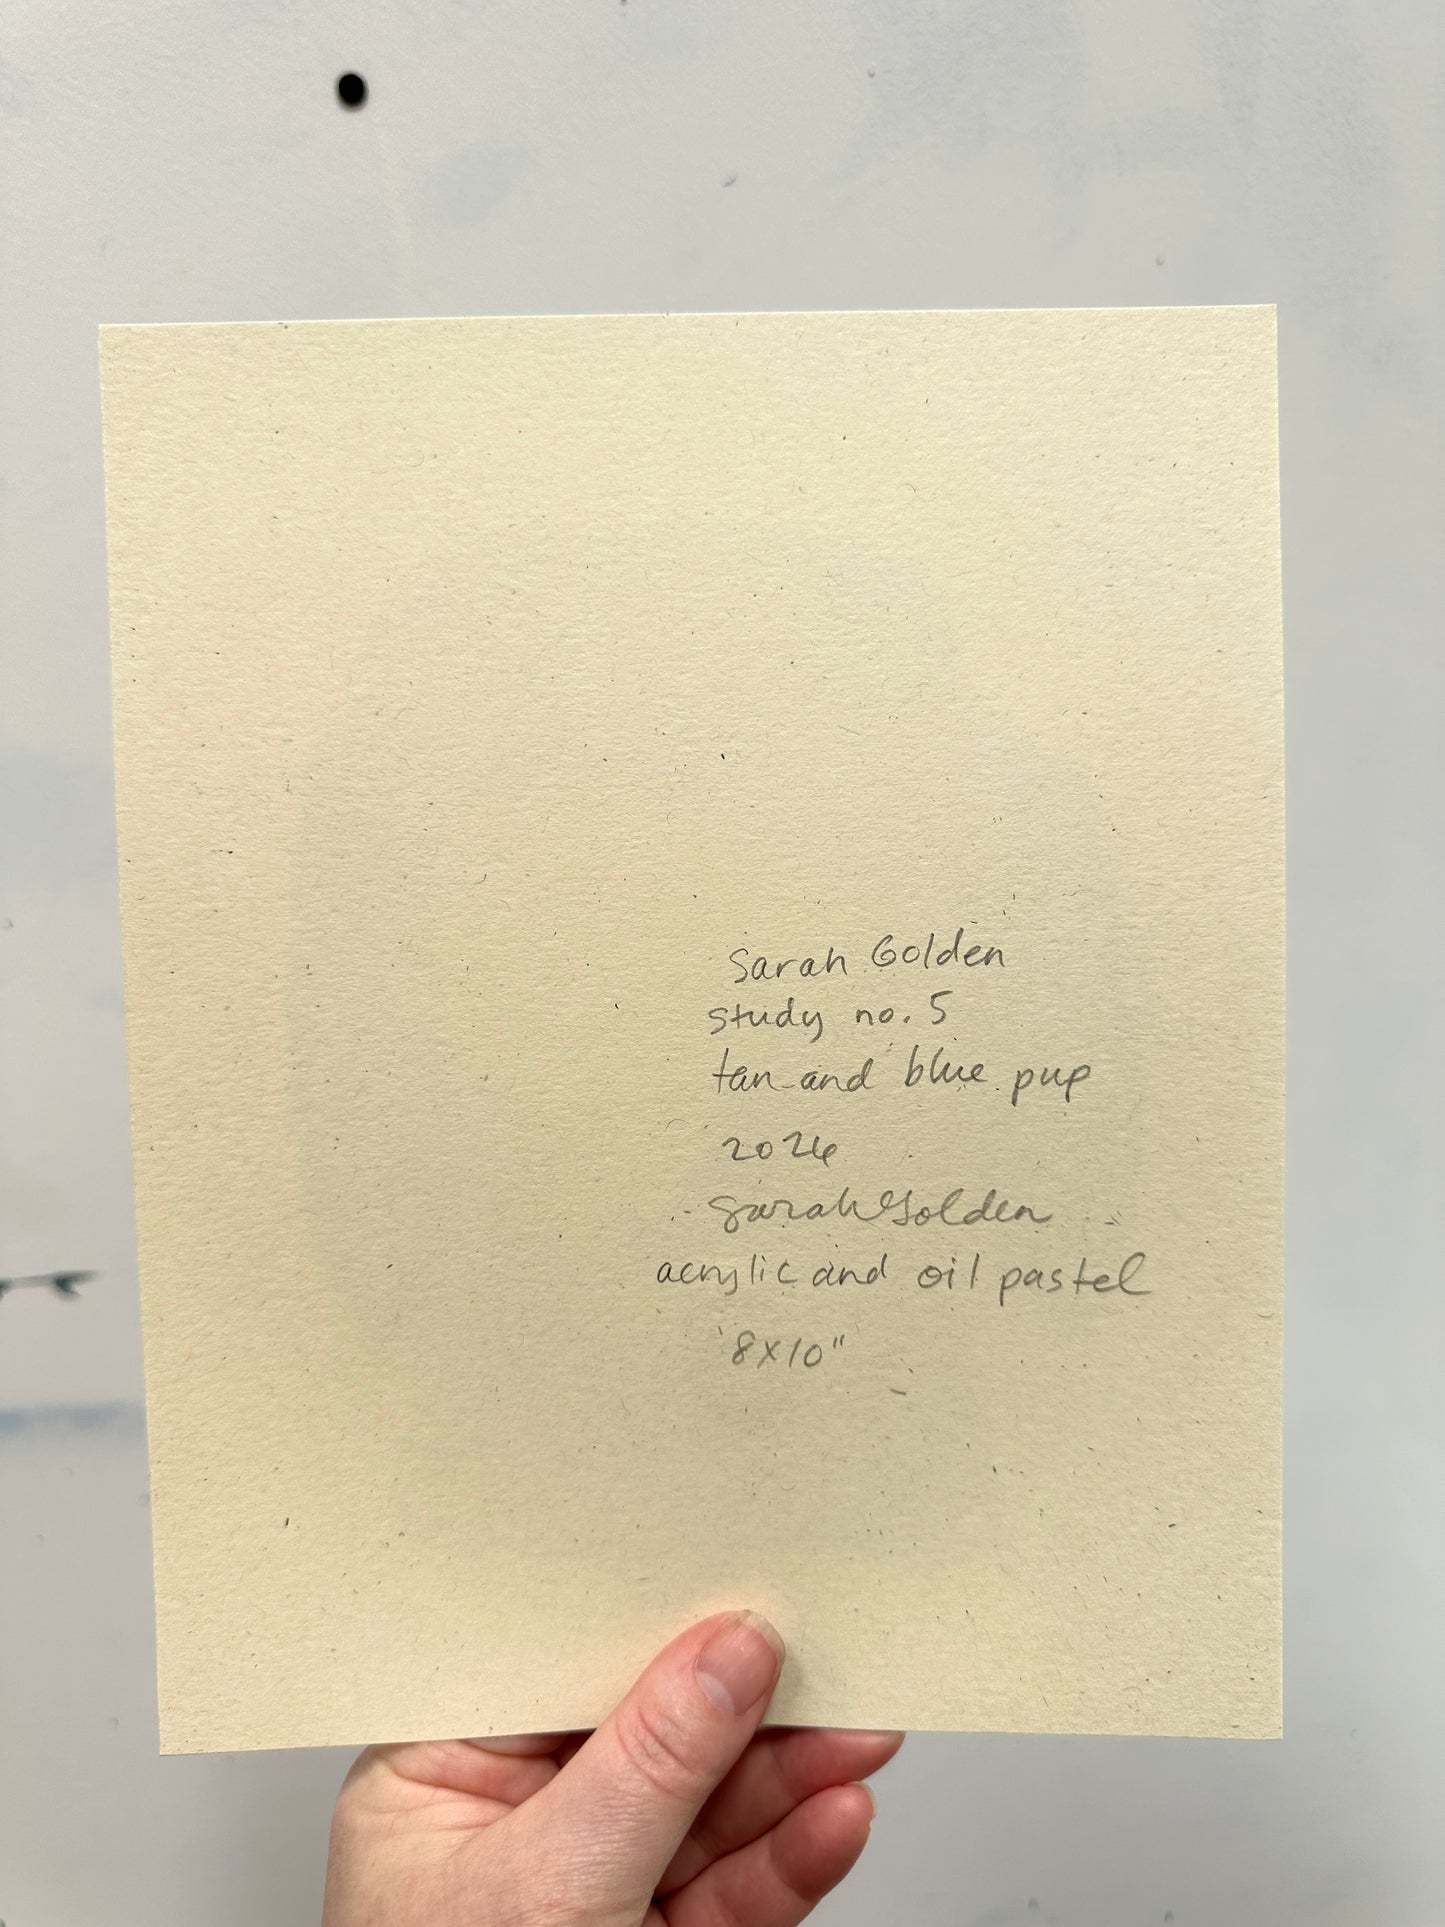 Sarah Golden
study no. 5
tan and blue pup
2026
Sarah Golden
acrylic and oil pastel
"8x10"